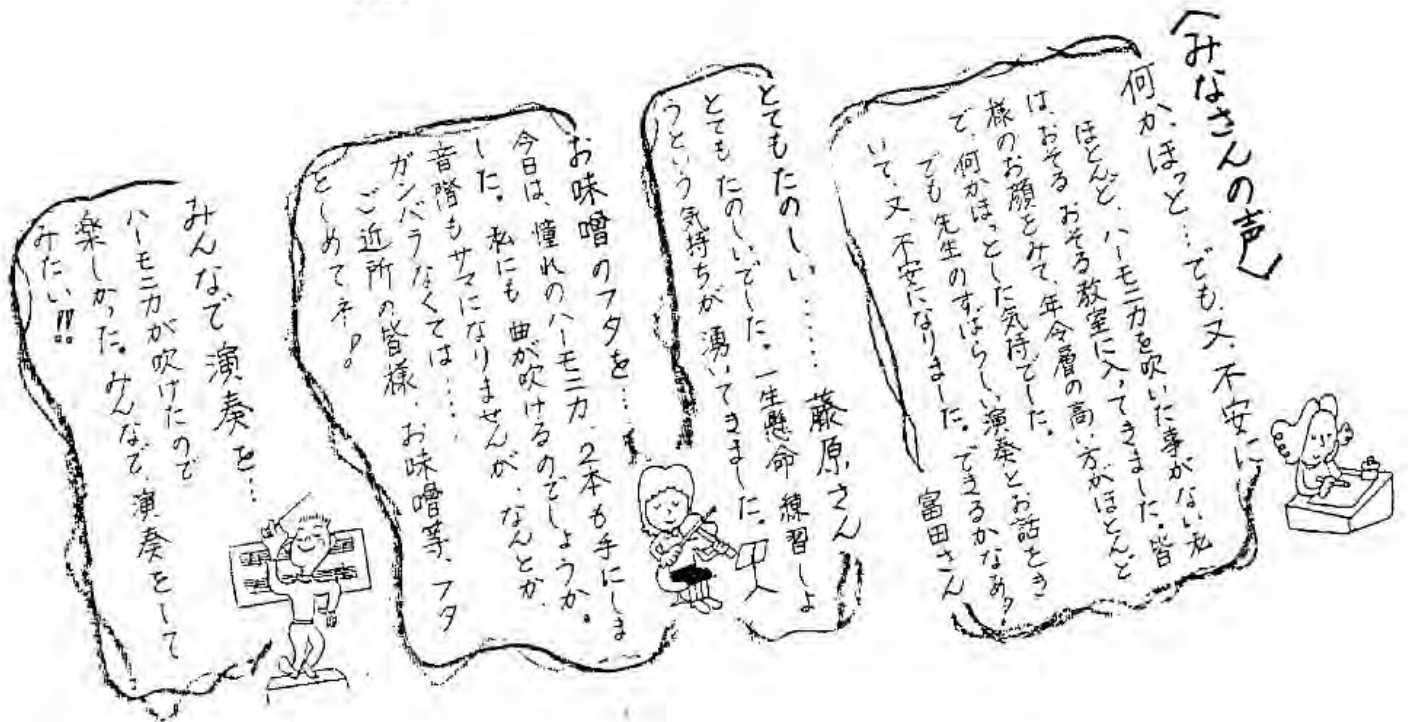 〈みなさんの声〉
何か、ほっと…でも、又、不安に
ほとんど、ハーモニカを吹いた事がない私
は、おそる おそる教室に入ってきました。皆
様のお顔をみて、年令層の高い方がほとんど
で、何かほっとした気持でした。
でも先生のすばらしい演奏とお話をき
いて、又、不安になりました。できるかなぁ?
富田さん
とてもたのしい…… 藤原さん
とても たのしいでした。一生懸命 練習しよ
うという気持ちが 湧いてきました。
お味噌のフタを…
今日は、憧れのハーモニカ、2本も手にしま
した。私にも 曲が吹けるのでしょうか。
音階もサマになりませんが、なんとか、
ガンバラなくては…、
ご近所の皆様、お味噌等、フタ
としめてネ!
みんなで演奏を…
ハーモニカが吹けたので
楽しかった。みんなで、演奏をして
みたい!!